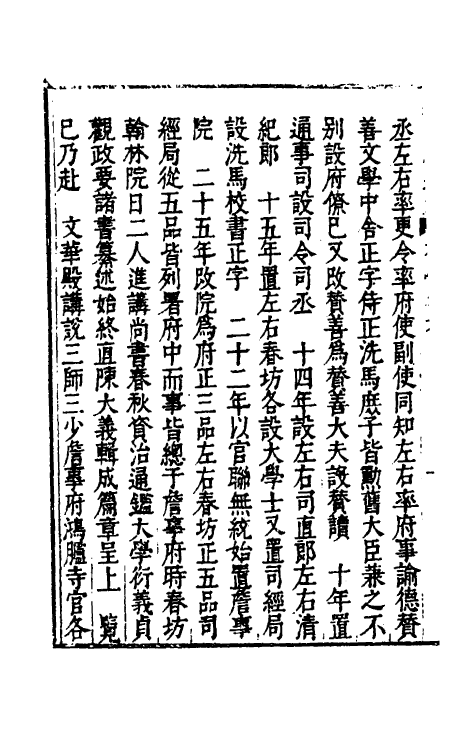 丞左右率更令率府使副使同知左右率府事諭德贊
善文學中舍正字侍正洗馬庶子皆勳舊大臣兼之不
别設府僚已又改贊善爲贊善大夫設贊讀　十年置
通事司設司令司丞　十四年設左右司直郎左右清
紀郎　十五年置左右春坊各設大學士又置司經局
設洗馬校書正字　二十二年以官聯無統始置詹事
院　二十五年改院爲府正三品左右春坊正五品司
經局從五品皆列署府中而事皆總于詹事府時春坊
翰林院日二人進講尚書春秋資治通鑑大學衍義貞
觀政要諸書纂述始終直陳大義輯成篇章呈上　覽
巳乃赴　文華殿講說三師三少詹事府鴻臚寺官各